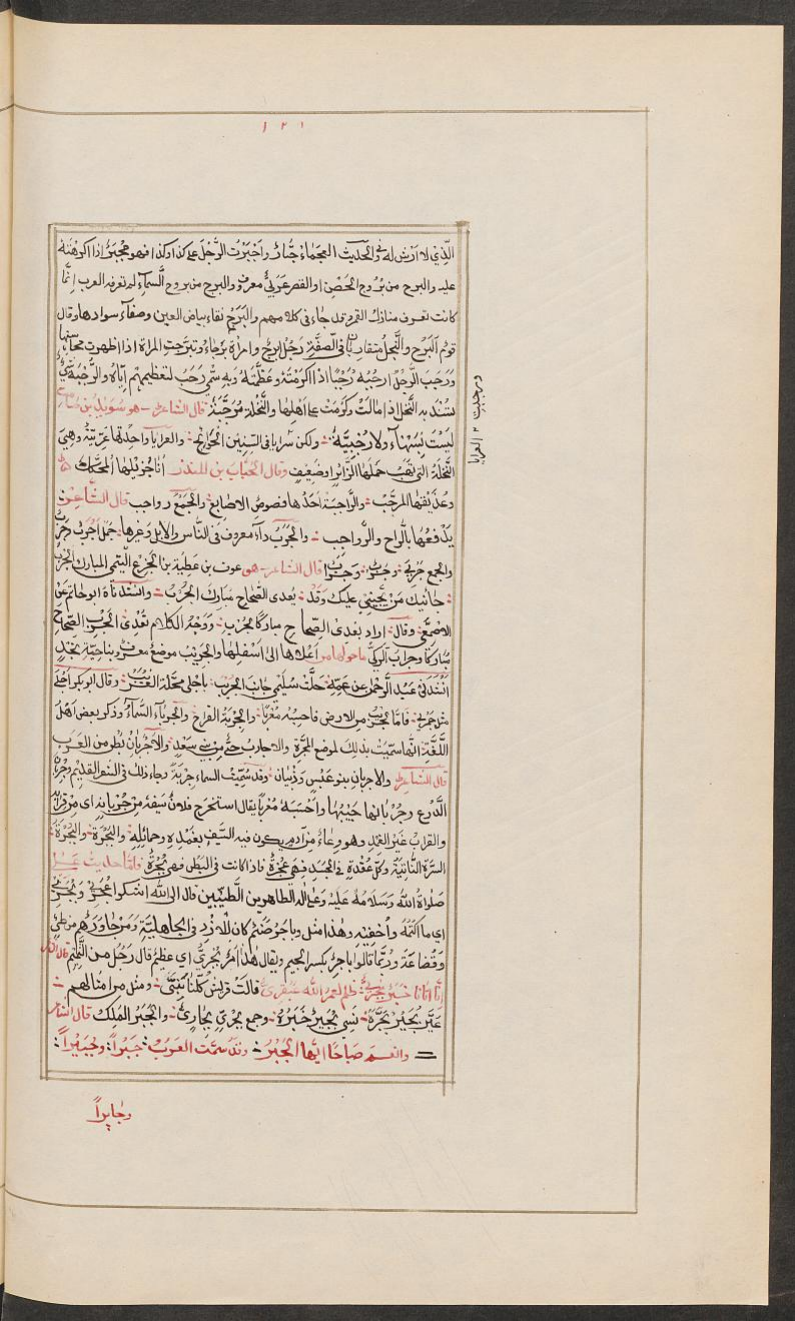 ١٢١
الّذي لا ارش له وفي الحديث العجماء جُبار واَجْبَرْت الرَّجُل على كذا وكذا فهو مُجْبَرٌ اذا اكرهته
عليه والبرج من بُرُوج الحَصْن او القصر عَرَبيٌّ معروف والبرج من بروج السَّمآء لم تعرفه العرب اِنَّما
كانت تعرف منازل القمر وقد جاء في كلامهم والبَرَج نقاء بياض العين وصفآء سوادها وقال
قوم اَلبَرَج والنَّجَل متقاربان في الصّفة رَجُل ابرج وامرأة بَرْجاء وتبرّجت المرأة اذا اظهرت محاسنها
ورَجَبَ الرّجُل ارجبه رُجْبًا اذا اكرمْتَه وعَظَّمْتَه وَبِهِ سُمّي رَجَب لتعظيمهم اِيّاهُ والرُّجْبَة شيء
يُسْنَد به النَّخل اذا مالَتْ وكَرُمَتْ على اهلها والنَّخلة مُرَجَّبَةٌ قال الشاعر هو سُوَيْد بن صامت
لَيْسَتْ بِسَنْهَاءٍ ولا رُجَّبيَّةٍ ولكن عَرايا في السّنين الجَوائح والعرايا واحِدتها عَرِيَّة وهِيَ
النَّخلة التي يُوهَب حَملُها لزائر او ضَعيفٍ وقال الحُباب بن المنذر أنا جُذَيْلها المُحكّك
وعُذَيْقها المرجّب والرّاجبة احَدُها فصوص الاصابع والجَمْع رواجب قال الشّاعر
يَدْفعُها بالرّاح والرّواجب والجَرَبُ دآء معروف في النّاس والابل وغيرها جَمَل اَجْرَب وجَرِب
والجمع جُربٌ وجَرْبى قال الشاعر هو عوف بن عطيّة بن الخَرِع التّيمي
جانيك مَنْ يَجْني عَلَيك وقَدْ يُعدى الصِّحاح مَبارك الجُرْب وانشدناه ابو حاتم عَنْ
الاصْمعي وقال اراد يعدى الصِّحاح مباركًا جُرْبٌ ووجه الكلام تُعْدي الجُرْب الصِّحاح
مَبارِكًا وجِراب الرَّكيّ ما حولها من اَعْلاها الى اَسْفلها والجَرِيْب موضع معروف وناحية بنجد
اَنْشدَني عَبْد الرَّحمن عن عمّه حَلَّتْ سُلَيْمي جانِبَ الجَريب باجْلي محَلّة الغَرِيب وقال ابو بكر اَجْلَى
مثل جَمَزَى فامّا الجَريب من الارض فاحسبُه مُعَرّبًا والجِرْبَة القَراح والجَرْباء السَّماء وذكر بعض اَهْل
اللّغَة اَنّها سمّيت بذلك لموضع المَجَرَّة والاَجارب حَيٌّ من بني سَعْدٍ والاَجْرَبانِ بُطن من العَرَب
قال الشاعر والاجربان بنو عَبْسٍ وذُبْيان وقد سُمّيَت السماء جِرْبَة وجاء ذلك في الشعر القديم وجِرِبّان
الدِّرع وجُرُبّانها جَيْبُها واَحْسَبُهُ مُعرّبًا يقال استخرج فلان سَيفَهُ من جُرُبّانه اي مِنْ قِرابه
والقراب غَير الغِمْد وهو وِعاءٌ من اَدم يكون فيه السَّيف بِغِمْدِه وحمائله والبُجْرَة والبَجْرَة
السرّة النّاتِئَة وكلّ عُقْدَةٍ في الجَسَد فهي عُجْرة فاذا كانت في البَطْن فهي بُجْرة وامّا حديث عَلي
صَلَواة الله وَسَلامه عَلَيْهِ وَعَلَى آله الطاهرين الطَّيّبين قال الى الله اشكو عُجَرِي وبُجَرِي
اي ما اَكْتُمُه واُخْفيه وهذا مثل وباجَر صَنَمٌ كان لِلازد في الجاهليّة وَمَنْ جاوَرَهُم من طيّ
وقُضاعَة ورُبّما قالوا باجِر بكسر الجيم ويقال هٰذا اَمْرٌ بُجْرِيٌّ اي عظيم قال رَجُل من التَّيْم
قالَتْ قريش كلُّنا نَبيٌّ ومثل من امثالهم
عَيَّر بُجَيْرٌ بُجَرَهْ نَسِيَ بُجَيْرٌ خَبَرَهُ وجمع بُجْريّ بَجاريّ والجَبْر المَلِك قال الشاعر
وانعم صَباحًا ايّها الجَبْر وقد سمّت العَرَب جَبْرًا وجُبَيْرًا
وجابرًا
ورجبيت
العرايا